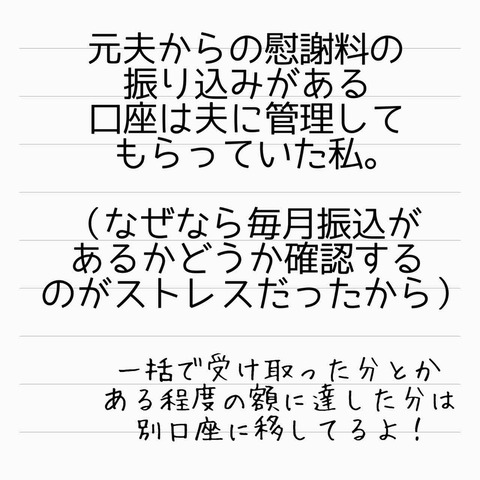 元夫からの慰謝料の
振り込みがある
口座は夫に管理して
もらっていた私。
（なぜなら毎月振込が
あるかどうか確認する
のがストレスだったから）
一括で受け取った分とか
ある程度の額に達した分は
別口座に移してるよ！